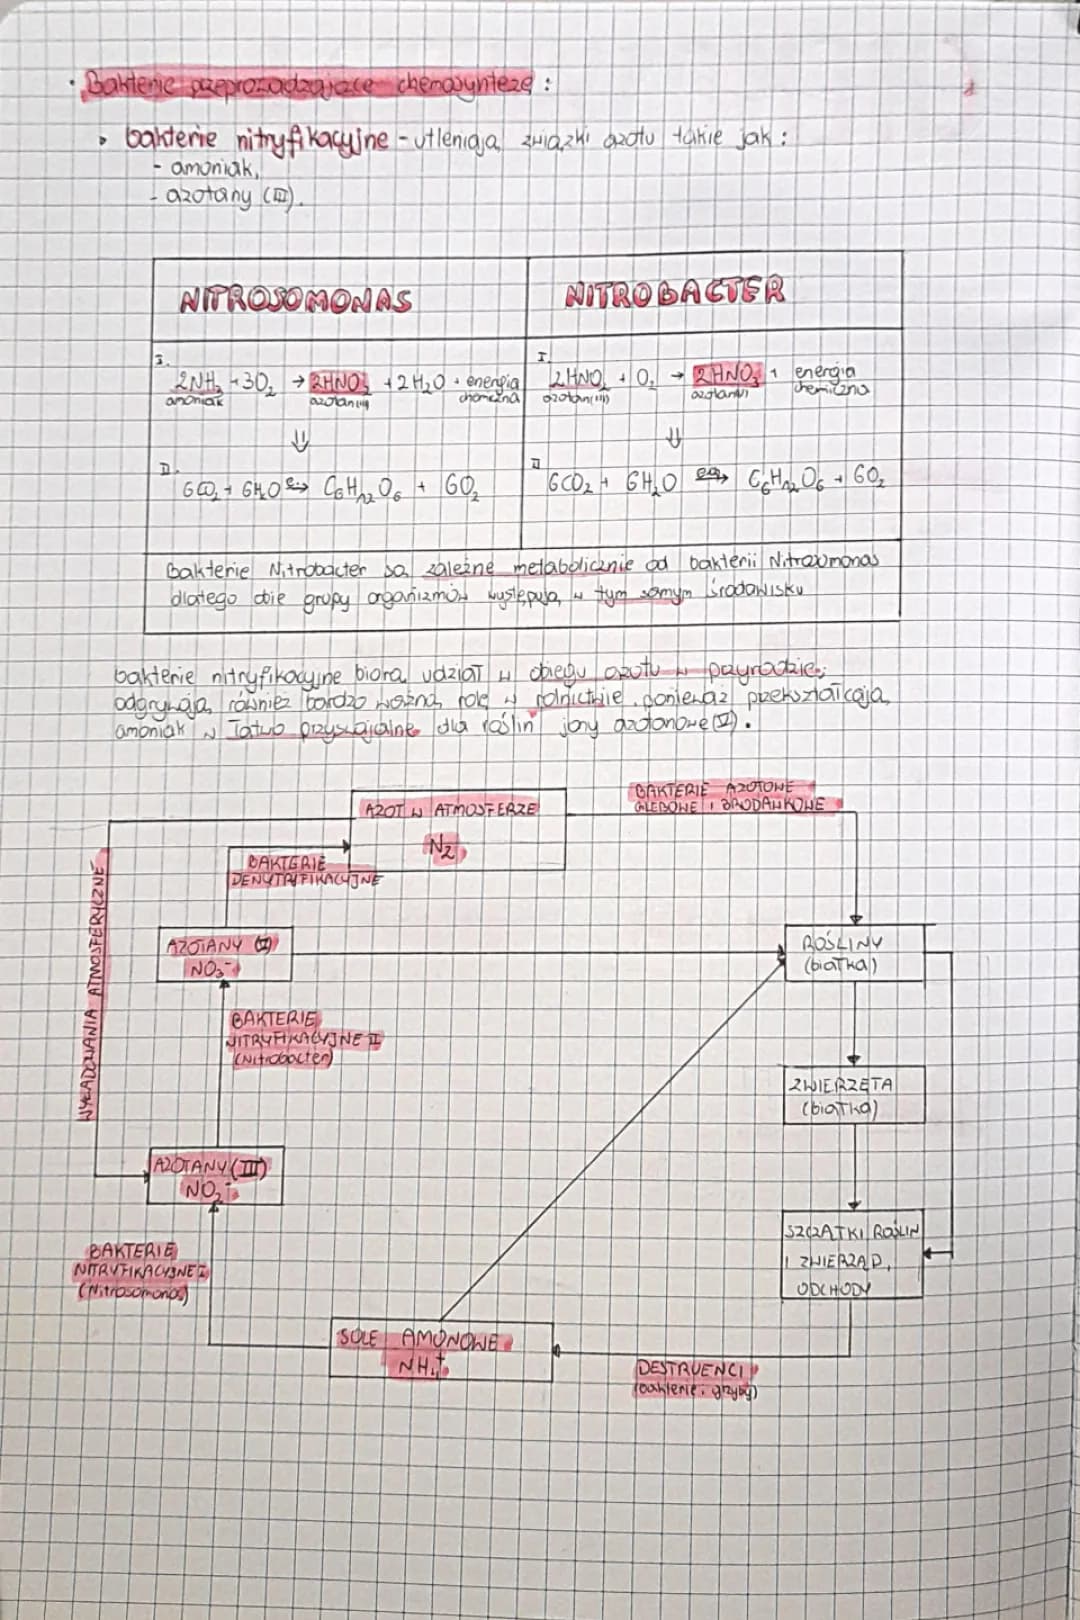 • Bakterie przeprowadzające chemosyntezę :
• bakterie nitryfikacyjne - utleniają związki azotu takie jak :
- amoniak,
- azotany (III).
NITROSOMONAS
NITROBACTER
I.
2NH3 + 3O2 → 2HNO2 + 2H2O + energia
amoniak azotan(III) chemiczna
⇓
II.
6CO2 + 6H2O → C6H12O6 + 6O2
I.
2HNO2 + O2 → 2HNO3 + energia
azotan(III) azotan(V) chemiczna
⇓
II
6CO2 + 6H2O → C6H12O6 + 6O2
Bakterie Nitrobacter są zależne metabolicznie od bakterii Nitrosomonas
dlatego obie grupy organizmów występują w tym samym środowisku
bakterie nitryfikacyjne biorą udział w obiegu azotu w przyrodzie;
odgrywają również bardzo ważną rolę w rolnictwie, ponieważ przekształcają
amoniak w łatwo przyswajalne dla roślin jony azotanowe (V).
AZOT W ATMOSFERZE
N2
BAKTERIE AZOTOWE
GLEBOWE I BRODAWKOWE
BAKTERIE
DENYTRYFIKACYJNE
WYŁADOWANIA ATMOSFERYCZNE
AZOTANY (V)
NO3-
ROŚLINY
(białka)
BAKTERIE
NITRYFIKACYJNE II
(Nitrobacter)
ZWIERZĘTA
(białka)
AZOTANY (III)
NO2-
SZCZĄTKI ROŚLIN
I ZWIERZĄT,
ODCHODY
BAKTERIE
NITRYFIKACYJNE I
(Nitrosomonas)
SOLE AMONOWE
NH4+
DESTRUENCI
(bakterie i grzyby)